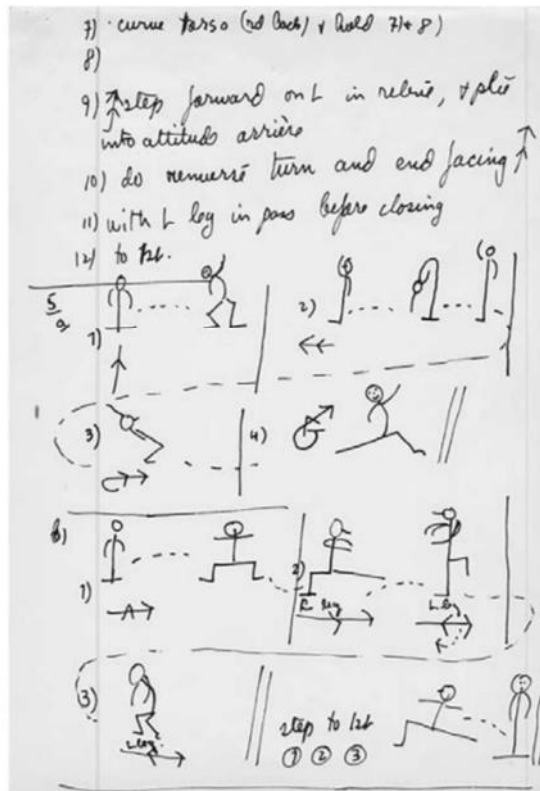 7) curve torso (rd back) & hold 7) & 8)
8)
9) step forward on L in relevé, & plié
into attitude arrière
10) do renversé turn and end facing
11) with L leg in pass before closing
12) to 1st.
1)
2)
3)
4)
6)
1)
2)
R leg
L leg
3)
L leg
step to 1st
① ② ③